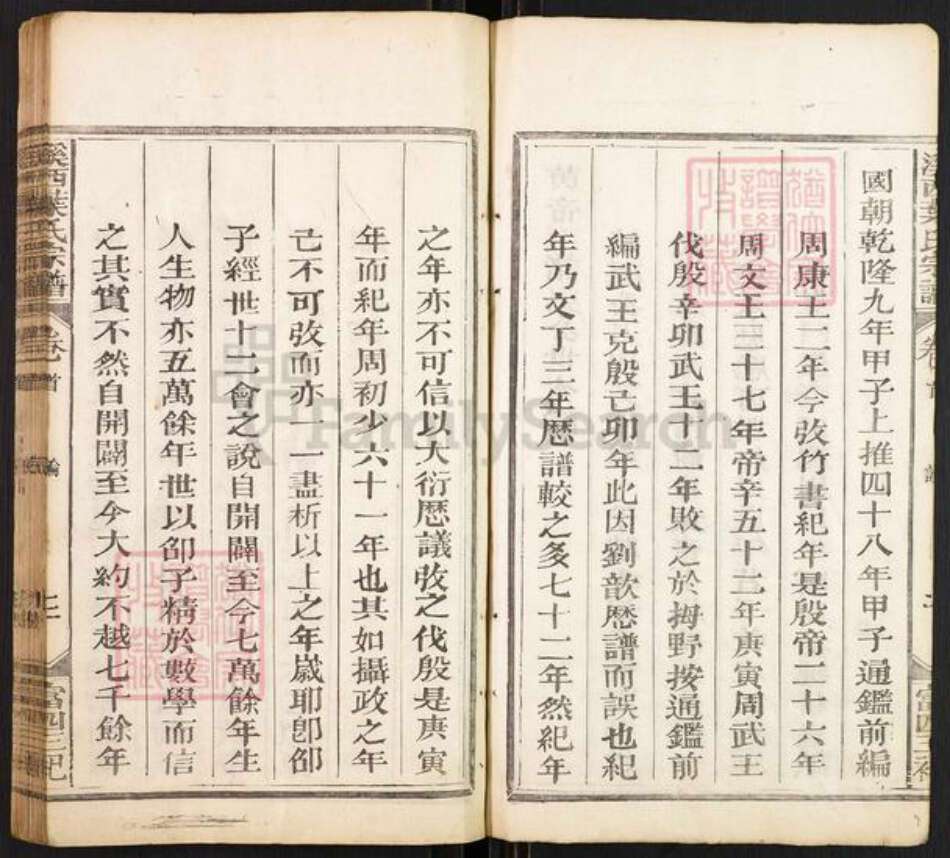 國朝乾隆九年甲子上推四十八年甲子通鑑前編
周康王二年今攷竹書紀年是殷帝二十六年
周文王三十七年帝辛五十二年庚寅周武王
伐殷辛卯武王十二年敗之於拇野按通鑑前
編武王克殷己卯年此因劉歆歴譜而誤也紀
年乃文丁三年歴譜較之多七十二年然紀年
之年亦不可信以大衍歴議攷之伐殷是庚寅
年而紀年周初少六十一年也其如攝政之年
已不可攷而亦一一盡析以上之年歲耶卽邵
子經世十二會之說自開闢至今七萬餘年生
人生物亦五萬餘年世以邵子精於數學而信
之其實不然自開闢至今大約不越七千餘年
溪西葉氏宗譜
卷首
論
FamilySearch